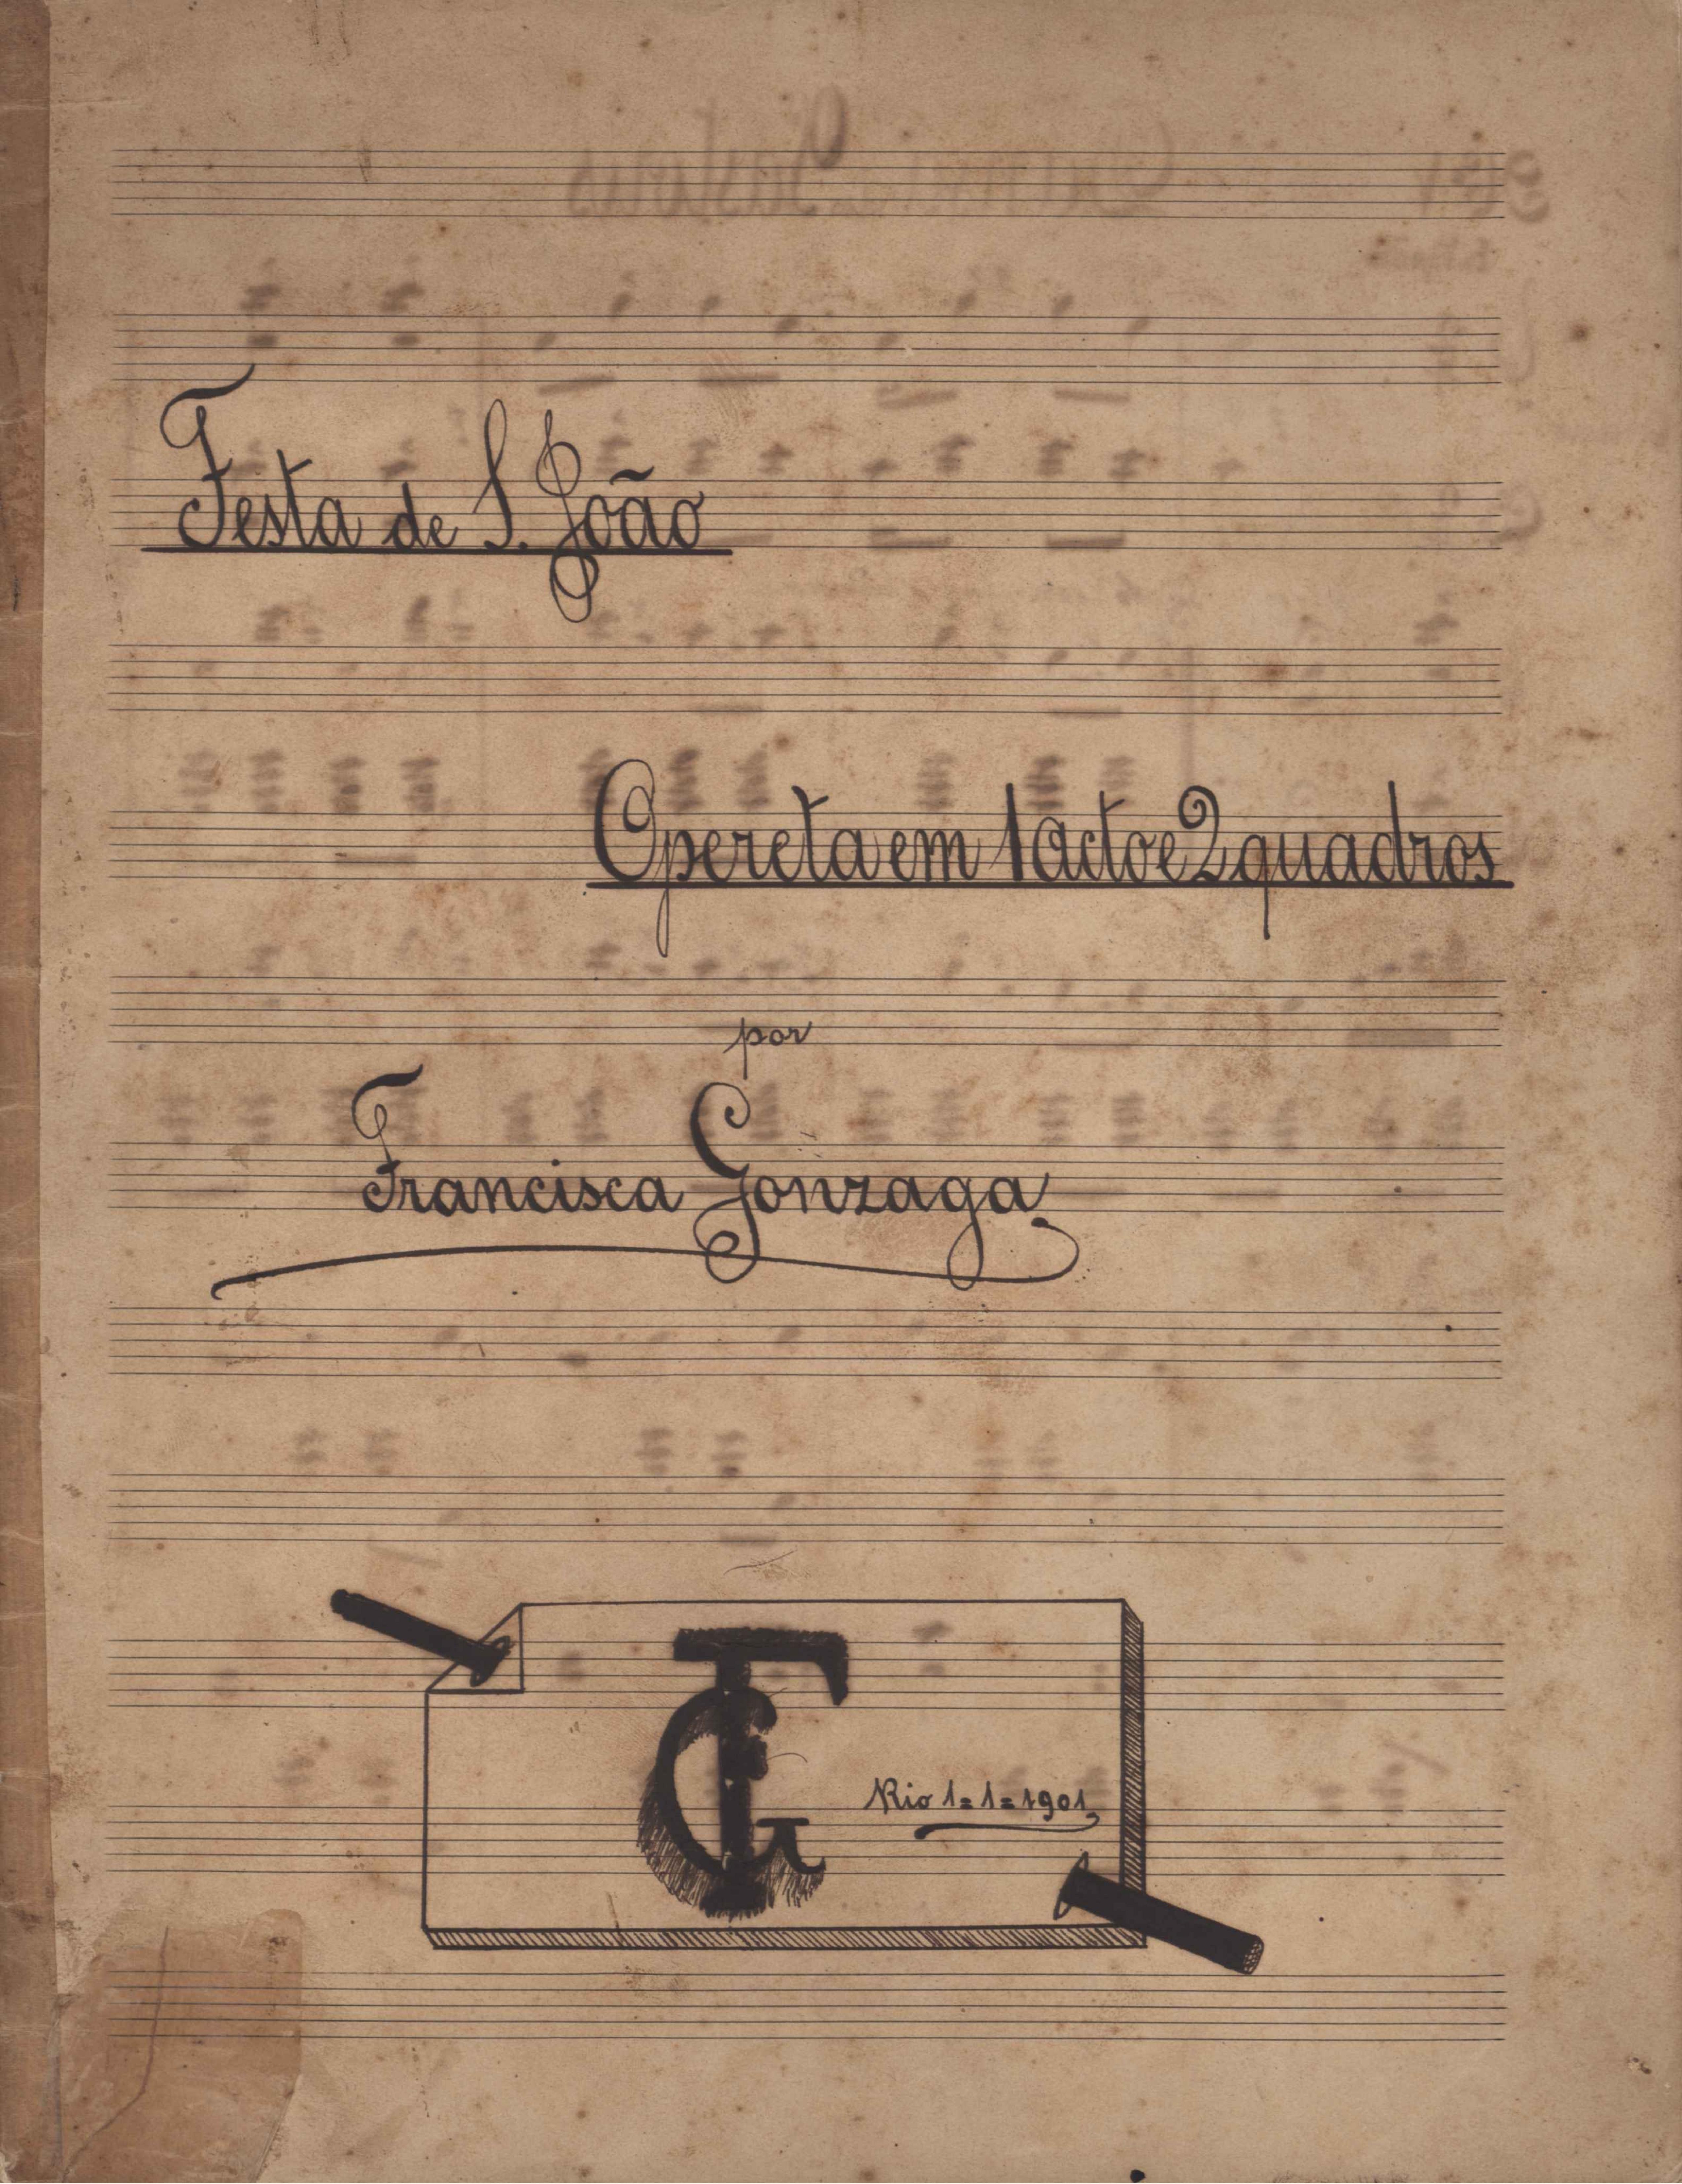 Festa de S. João
Opereta em 1 acto e 2 quadros
por
Francisca Gonzaga
FG
Rio 1=1=1901